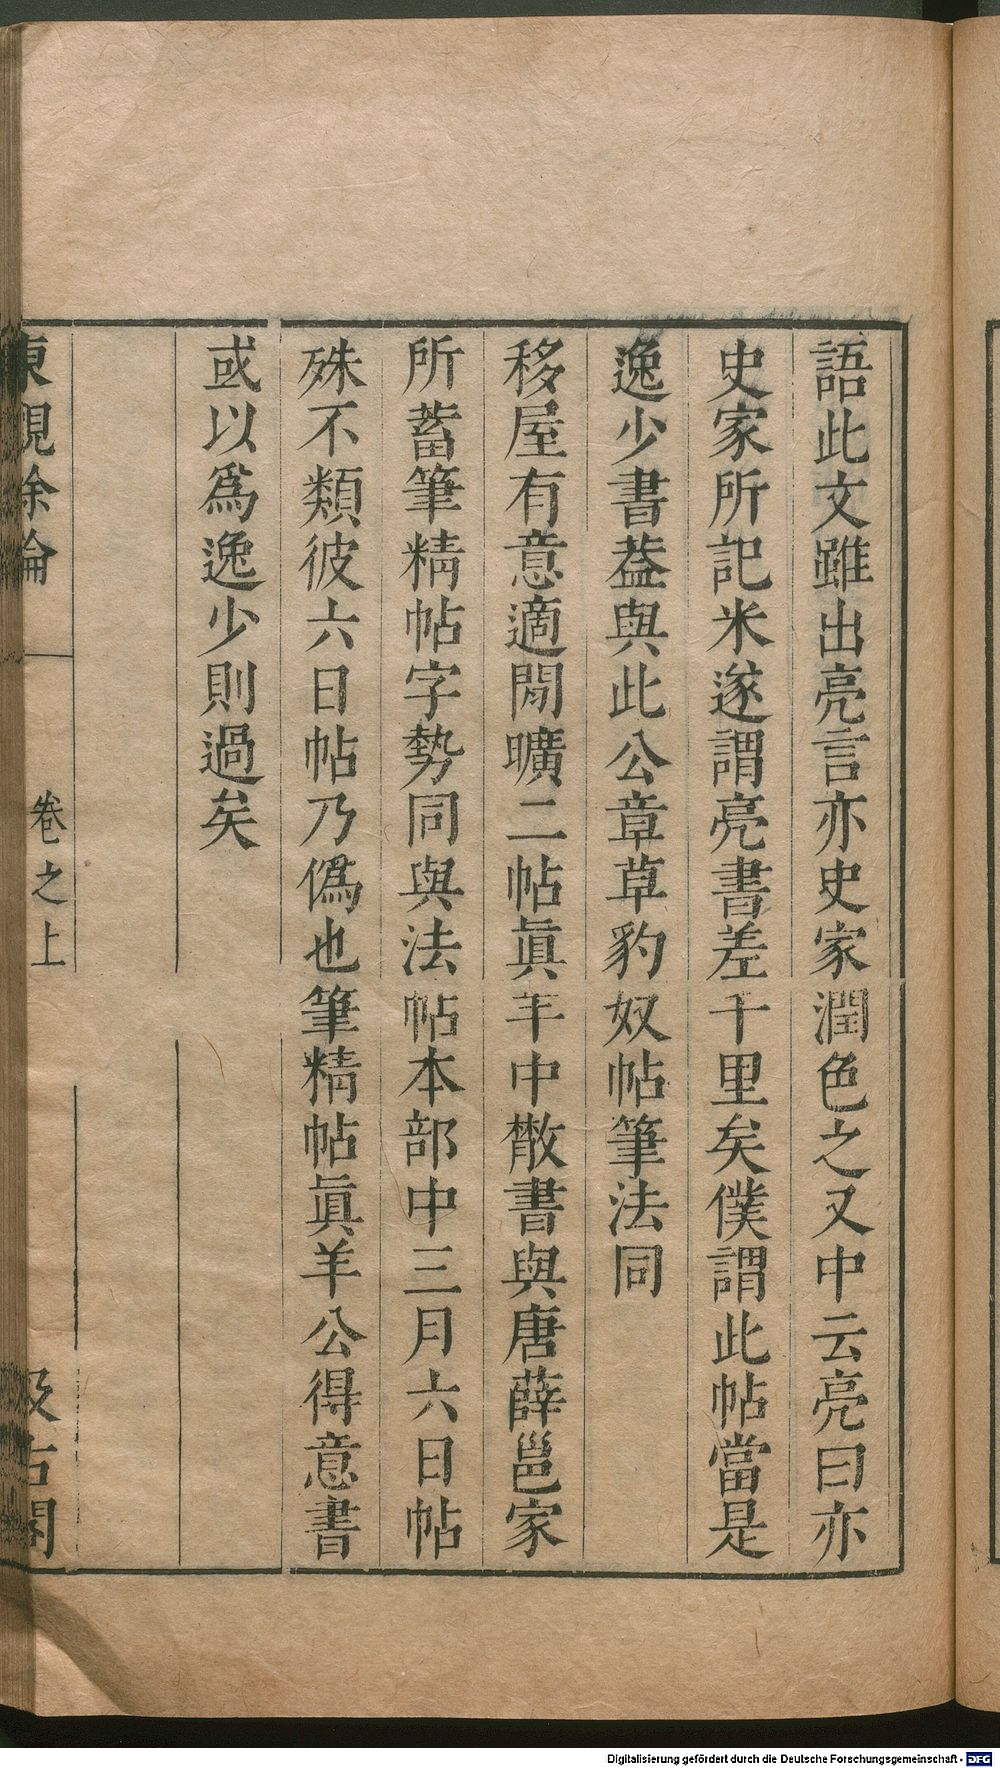 語此文雖出亮言亦史家潤色之又中云亮曰亦
史家所記米遂謂亮書差千里矣僕謂此帖當是
逸少書葢與此公章草豹奴帖筆法同
移屋有意適閒曠二帖眞羊中散書與唐薛邕家
所蓄筆精帖字勢同與法帖本部中三月六日帖
殊不類彼六日帖乃僞也筆精帖眞羊公得意書
或以爲逸少則過矣
東觀餘論
卷之上
汲古閣
Digitalisierung gefördert durch die Deutsche Forschungsgemeinschaft - DFG